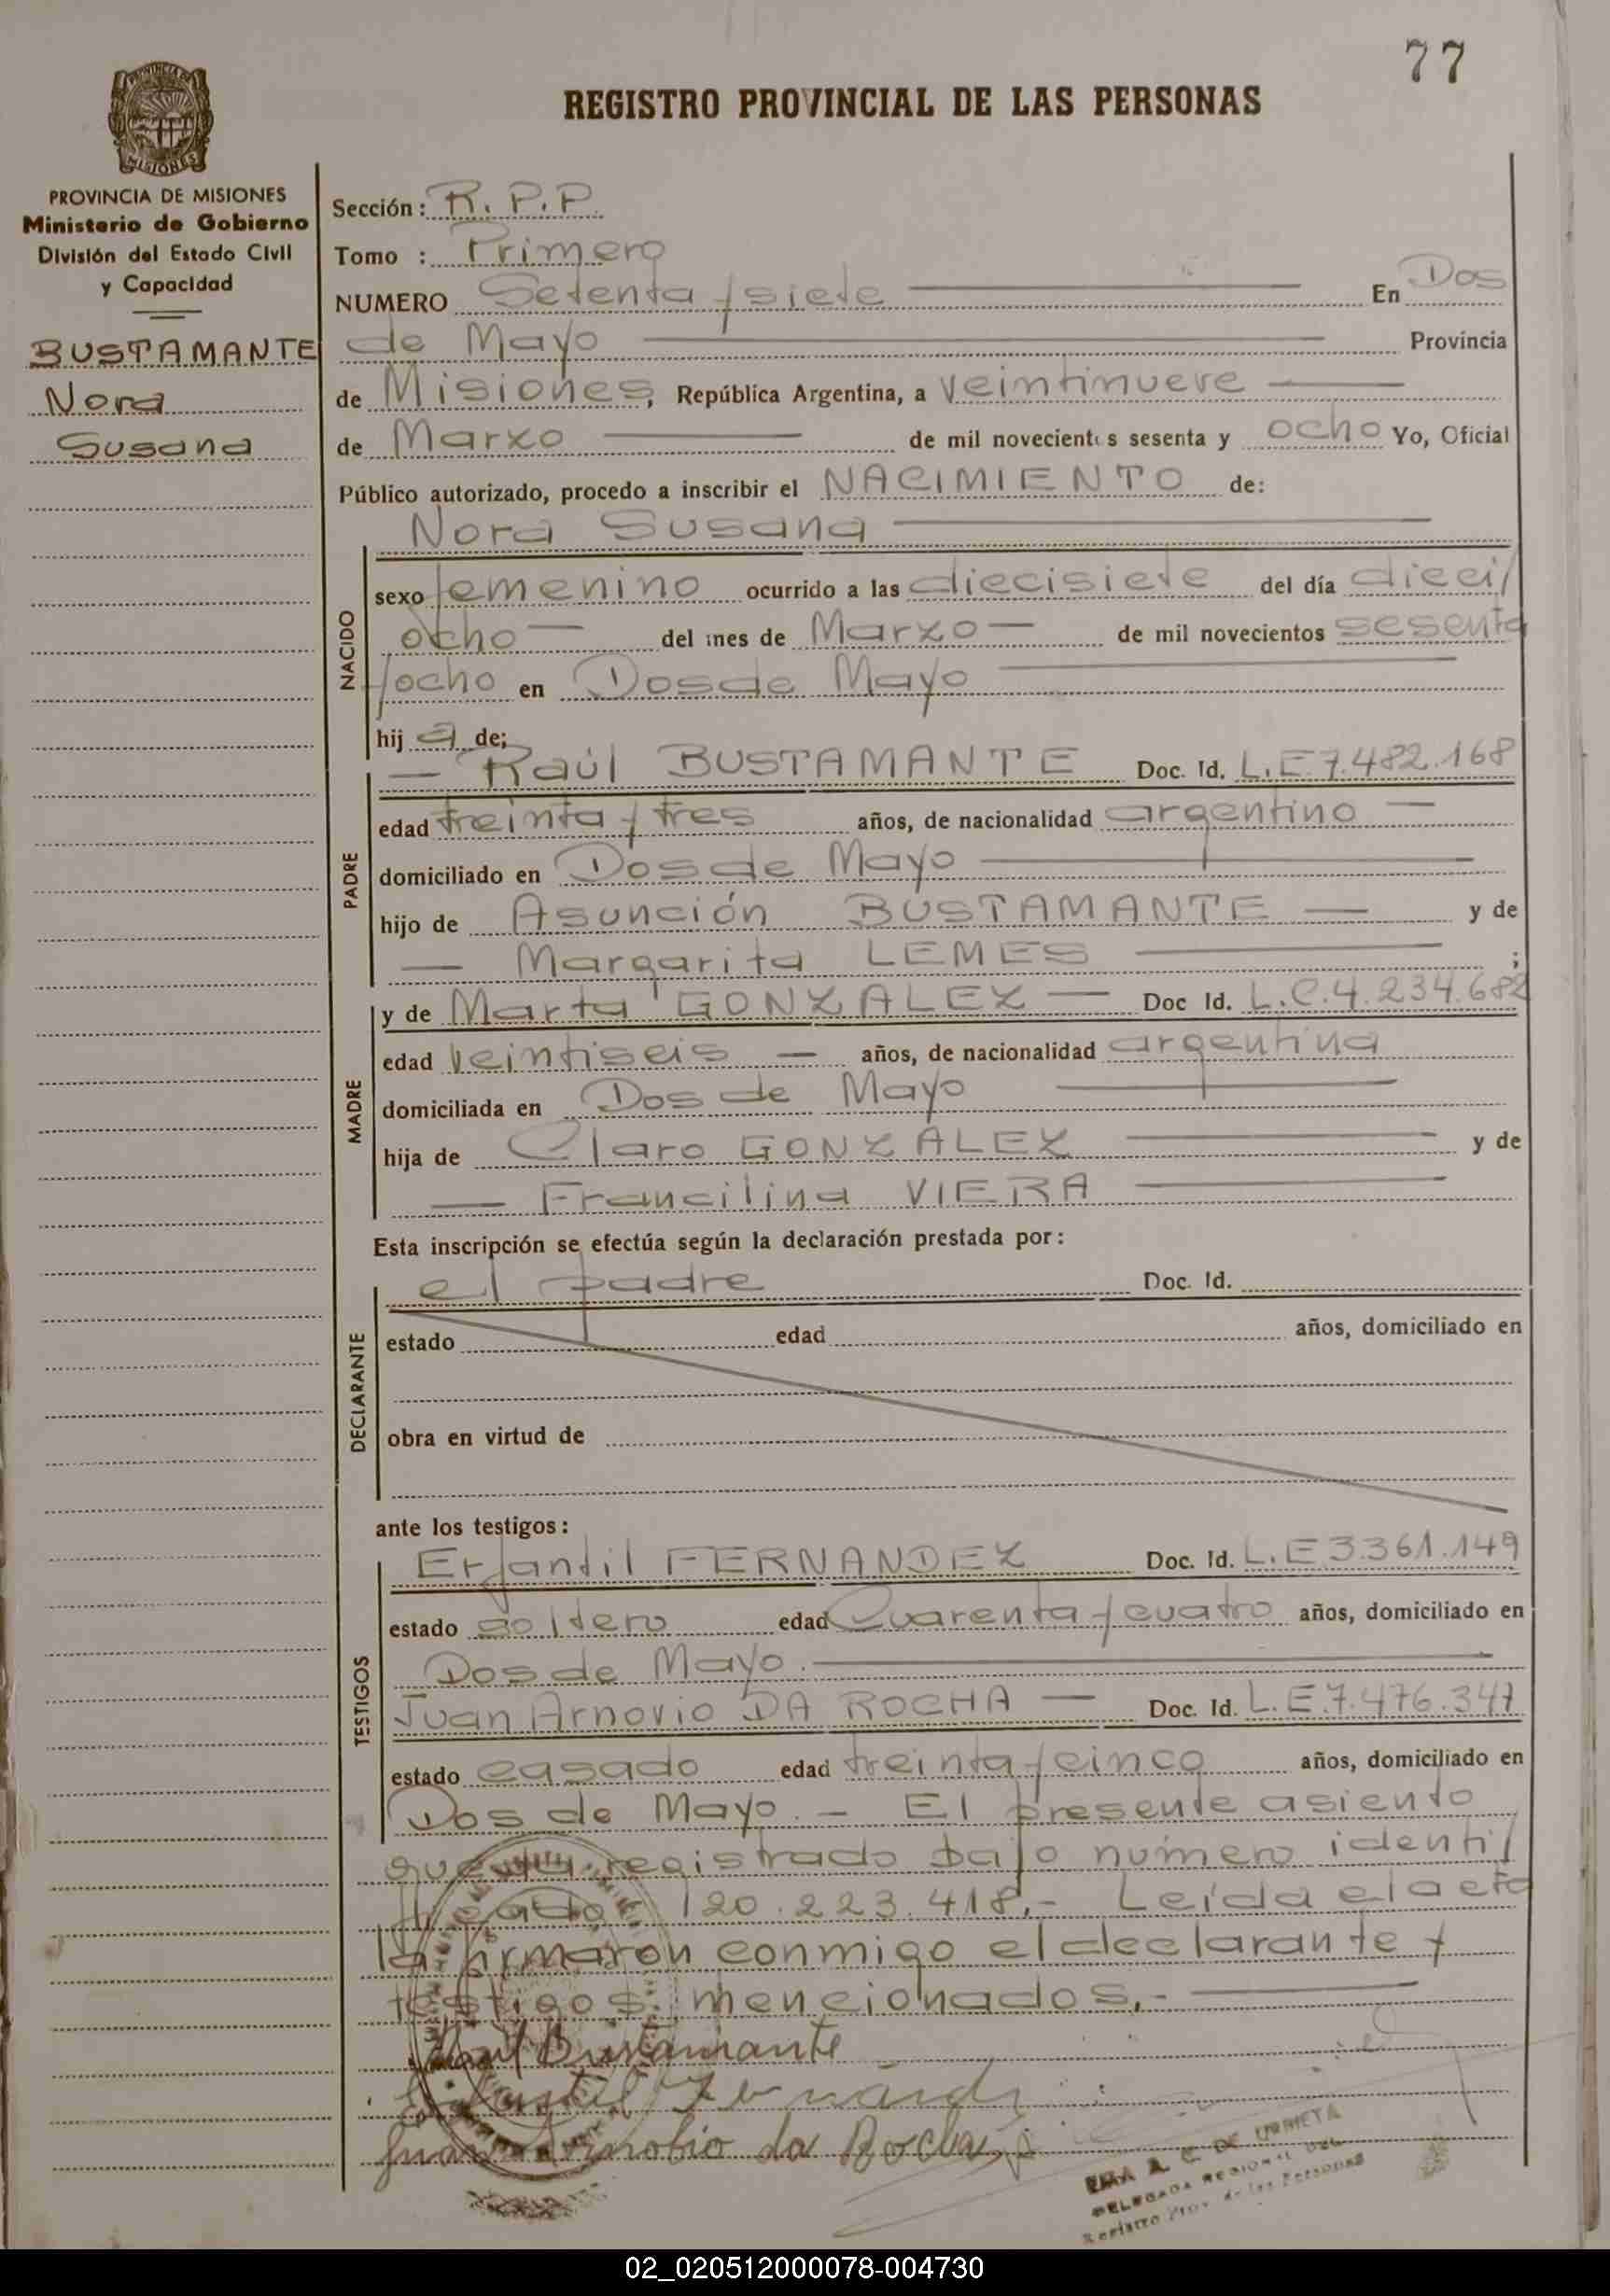 77
REGISTRO PROVINCIAL DE LAS PERSONAS
MISIONES
PROVINCIA DE MISIONES
Ministerio de Gobierno
División del Estado Civil
y Capacidad
BUSTAMANTE
Nora
Susana
Sección: R. P. P.
Tomo : Primero
NUMERO Setenta y siete En Dos
de Mayo Provincia
de Misiones, República Argentina, a veintinueve
de Marzo de mil novecientos sesenta y ocho Yo, Oficial
Público autorizado, procedo a inscribir el NACIMIENTO de:
Nora Susana
NACIDO
sexo femenino ocurrido a las diecisiete del día dieci/
ocho del mes de Marzo de mil novecientos sesenta
y ocho en Dos de Mayo
hij a de;
PADRE
Raúl BUSTAMANTE Doc. Id. L.E 7.482.168
edad treinta y tres años, de nacionalidad argentino
domiciliado en Dos de Mayo
hijo de Asunción BUSTAMANTE y de
Margarita LEMES ;
MADRE
y de Marta GONZALEZ Doc Id. L.C.4.234.682
edad veintiseis años, de nacionalidad argentina
domiciliada en Dos de Mayo
hija de Claro GONZALEZ y de
Francilina VIERA
Esta inscripción se efectúa según la declaración prestada por:
DECLARANTE
el padre Doc. Id.
estado edad años, domiciliado en
obra en virtud de
ante los testigos:
TESTIGOS
Erfantil FERNANDEZ Doc. Id. L.E 3.361.149
estado soltero edad Cuarenta y cuatro años, domiciliado en
Dos de Mayo.
Juan Arnovio DA ROCHA Doc. Id. L.E.7.476.347
estado casado edad treinta y cinco años, domiciliado en
Dos de Mayo. - El presente asiento
queda registrado bajo número identi/
ficador 120.223.418.- Leída el acta
la firmaron conmigo el declarante y
testigos mencionados.-
Raúl Bustamante
Juan Arnobio da Rocha
C. DE URRIETA
DELEGADA REGIONAL DEL
Registro Prov. de las Personas
02_020512000078-004730